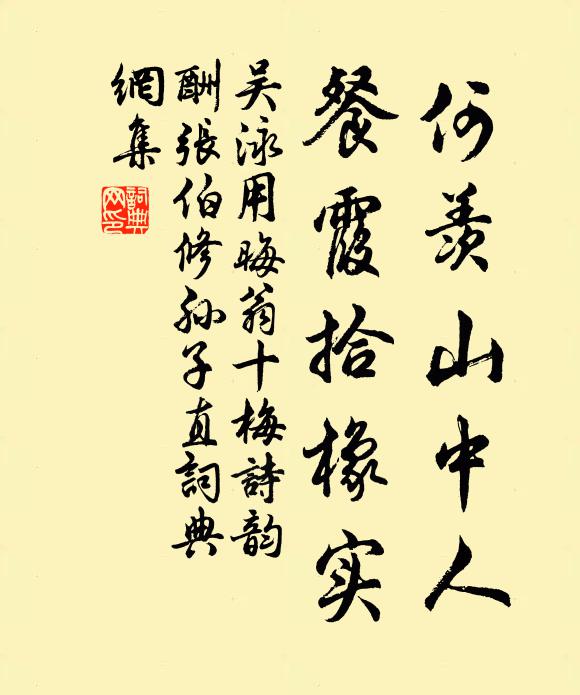 何羡山中人
餐霞拾橡实
吴泳用晦翁十梅詩韵
酬張伯修孙子直詞典
網集
詞典網印